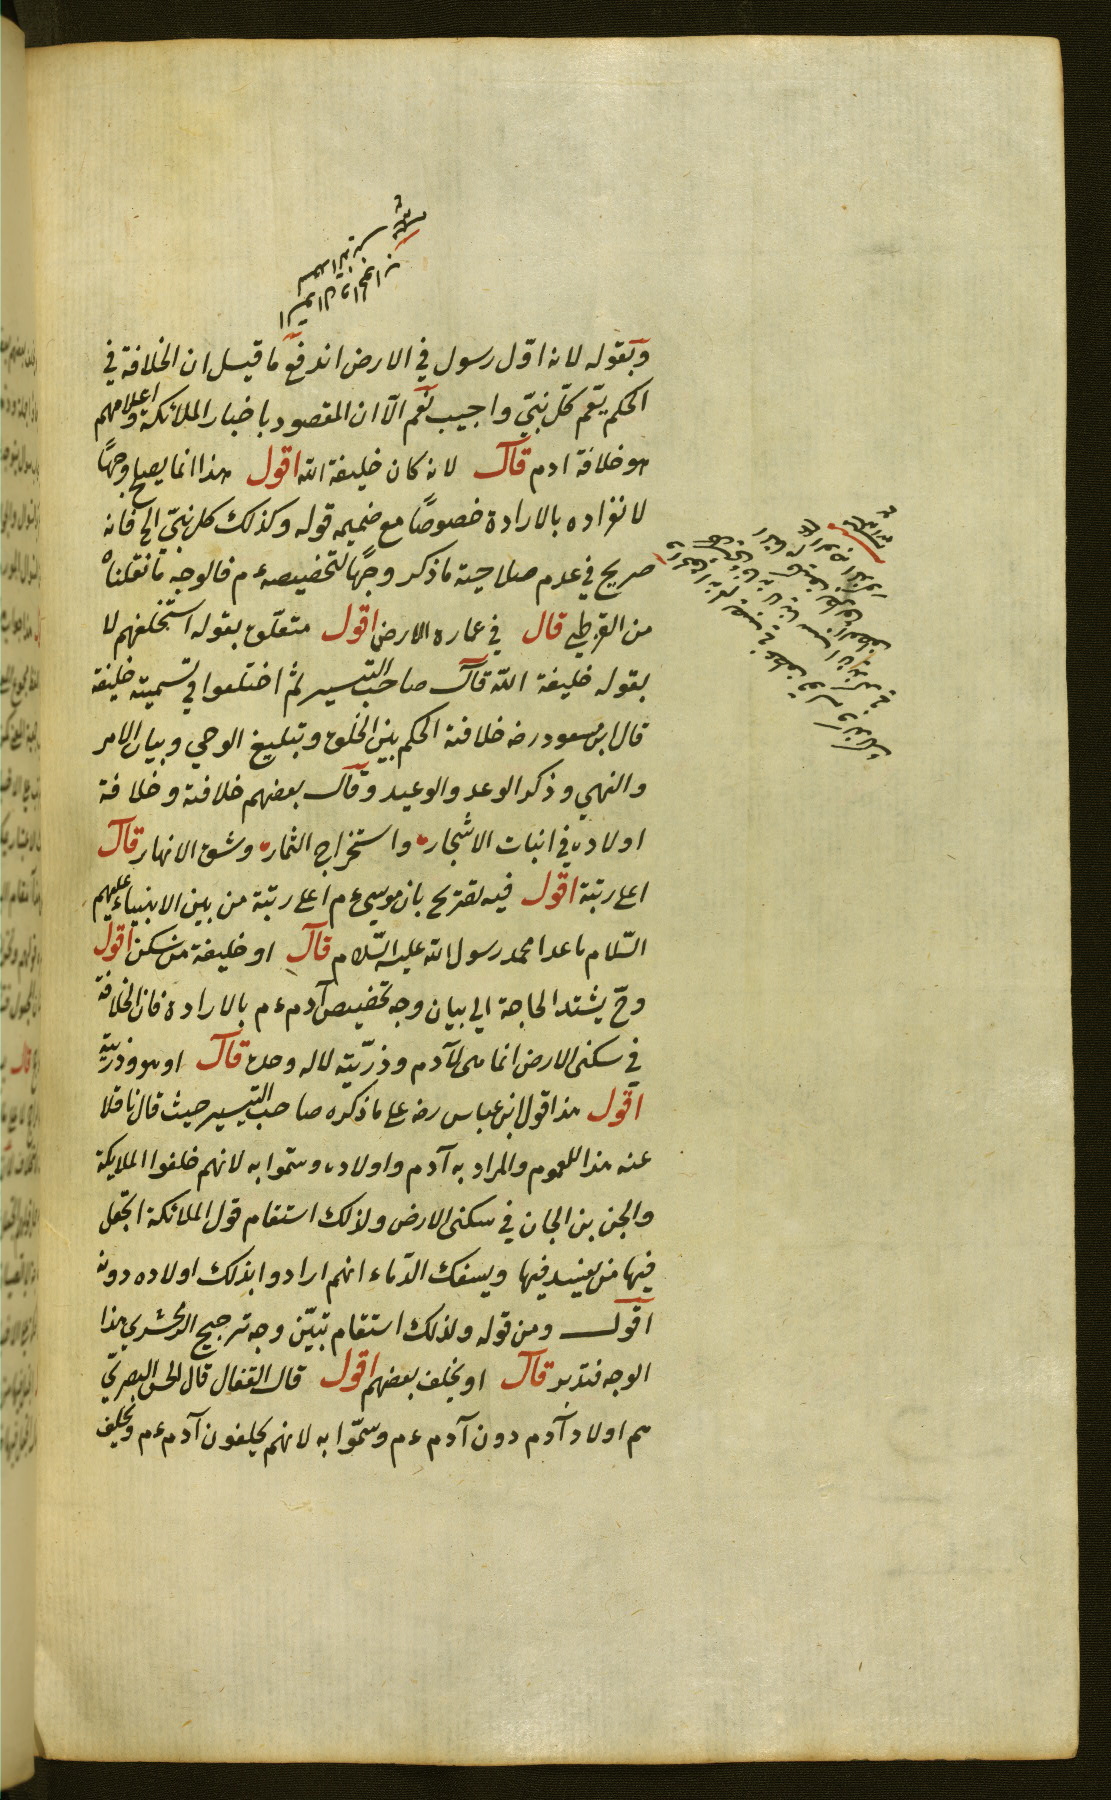 وبقوله لانه اوّل رسول في الارض اندفع ما قيل ان الخلافة في
الحكم يعمّ كلّ نبيّ واجيب نعم الّا ان المقصود باخبار الملائكة واعلامهم
هو خلافة ادم قال لانه كان خليفة الله اقول هذا انما يصلح وجهًا
لانفراده بالارادة خصوصًا مع ضميمه قوله وكذلك كل نبيّ الخ فانه
صريح في عدم صلاحية ما ذكر وجهًا لتخصيصه ءم فالوجه ما نقلناه
من القرطبي قال في عمارة الارض اقول متعلّق بقوله استخلفهم لا
بقوله خليفة الله قال صاحب التيسير ثم اختلفوا في تسميته خليفة
قال ابن مسعود رضه خلافته الحكم بين الخلق وتبليغ الوحي وبيان الامر
والنهي وذكر الوعد والوعيد وقال بعضهم خلافته وخلافة
اولاده في انبات الاشجار واستخراج الثمار وشق الانهار قال
اعلى رتبة اقول فيه تصريح بان موسى ءم اعلى رتبة من بين الانبياء عليهم
السّلام ما عدا محمد رسول الله عليه السّلام قال او خليفة من سكن اقول
وحّ يشتد الحاجة الى بيان وجه تخصيص آدم ءم بالارادة فان الخلافة
في سكنى الارض انما هى لآدم وذرّيته لا له وحده قال او هو وذريته
اقول هذا قول ابن عباس رضه على ما ذكره صاحب التيسير حيث قال ناقلا
عنه هذا للعموم والمراد به آدم واولاده وسمّوا به لانهم خلفوا الملايكة
والجن بن الجان في سكنى الارض ولذلك استقام قول الملائكة اتجعل
فيها من يفسد فيها ويسفك الدّماء انهم ارادوا بذلك اولاده دونه
اقول ومن قوله ولذلك استقام تبيّن وجه ترجيح الزمخشري هذا
الوجه فتدبر قال او يخلف بعضهم اقول قال القفال قال الحسن البصريّ
هم اولاد آدم دون آدم ءم وسمّوا به لانهم يخلفون آدم ءم ويخلف